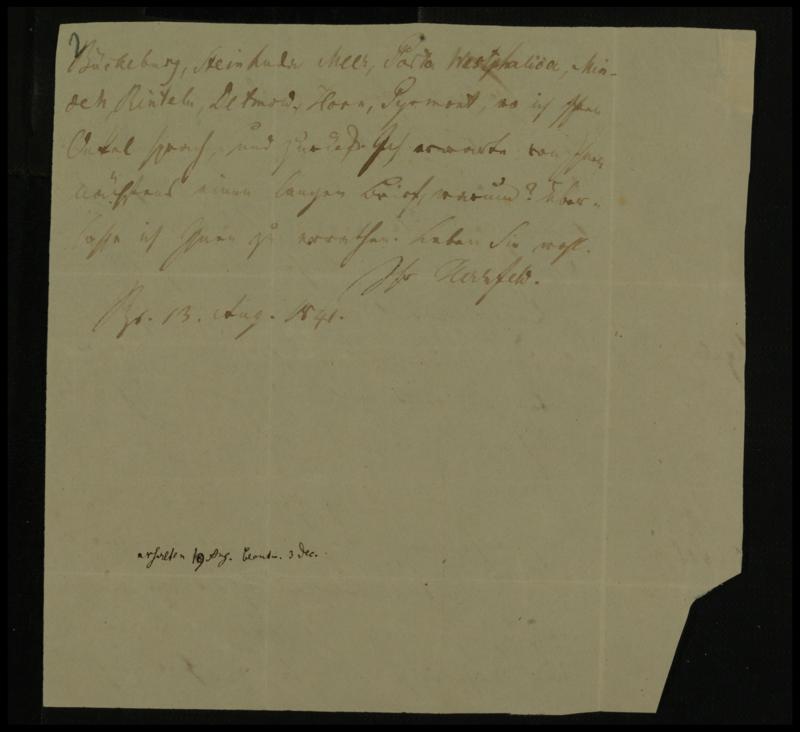 2
Bückeburg, Steinhuder Meer, Porta Westphalica, Min-
den Rinteln, Detmold, Horn, Pyrmont, wo ich Ihren
Onkel sprach, und zurück. Ich erwarte von Ihnen
nächstens einen langen Brief, warum? über-
lasse ich Ihnen zu errathen. Leben Sie wohl.
Ihr Herzfeld.
13. Aug. 1841.
erhalten 19 Aug. beantw. 3 Dec.